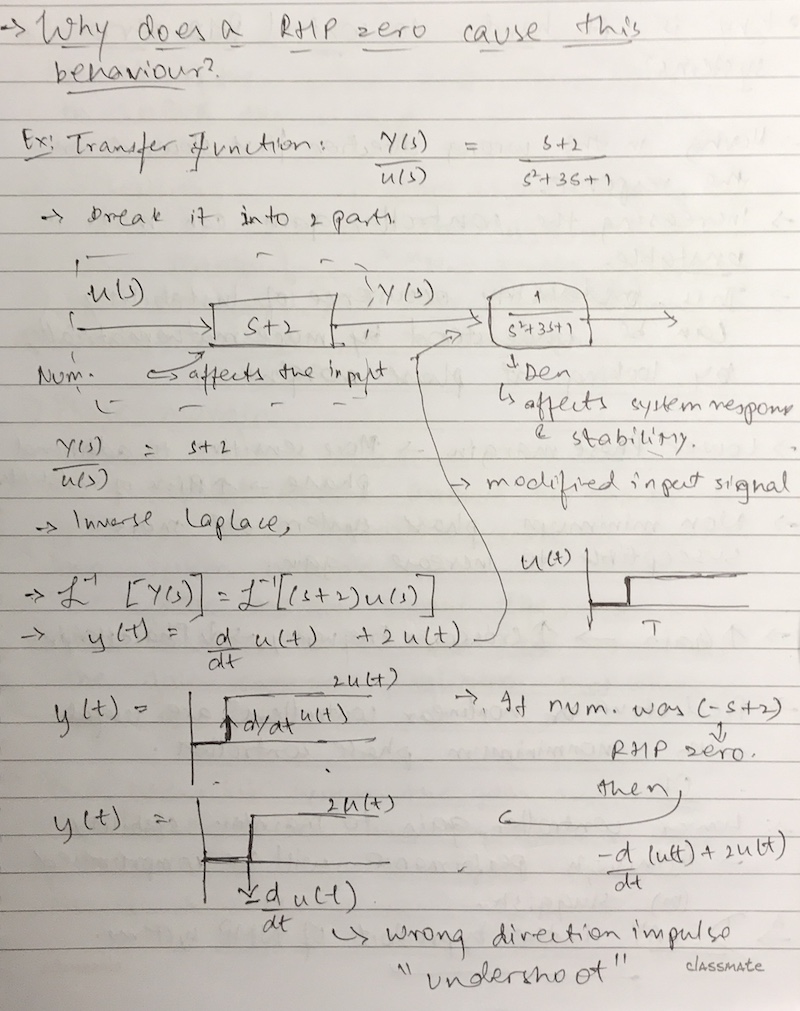 → Why does a RHP zero cause this
behaviour?
Ex: Transfer Function: Y(s)/u(s) = s+2/s²+3s+1
→ break it into 2 parts.
u(s) s+2 Y(s) 1/s²+3s+1
Num. ↪ affects the input ↓ Den
↳ affects system response
& stability.
Y(s)/u(s) = s+2
→ modified input signal
→ Inverse Laplace,
u(t)
→ ℒ⁻¹ [Y(s)] = ℒ⁻¹[(s+2)u(s)]
T
→ y(t) = d/dt u(t) + 2u(t)
2u(t)
y(t) = d/dt u(t)
→ If num. was (-s+2)
RHP zero.
then,
y(t) = 2u(t)
-d/dt (u(t)) + 2u(t)
-d/dt u(t)
↳ wrong direction impulse
"undershoot"
classmate